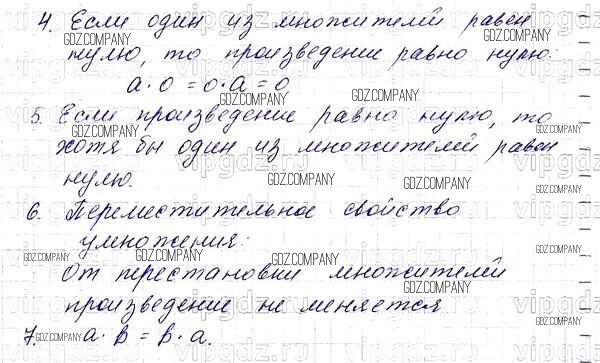 4. Если один из множителей равен
нулю, то произведение равно нулю:
a · 0 = 0 · a = 0
5. Если произведение равно нулю, то
хотя бы один из множителей равен
нулю.
6. Переместительное свойство
умножения:
От перестановки множителей
произведение не меняется
7. a · в = в · a.
GDZ.COMPANY
vipgdz.ru